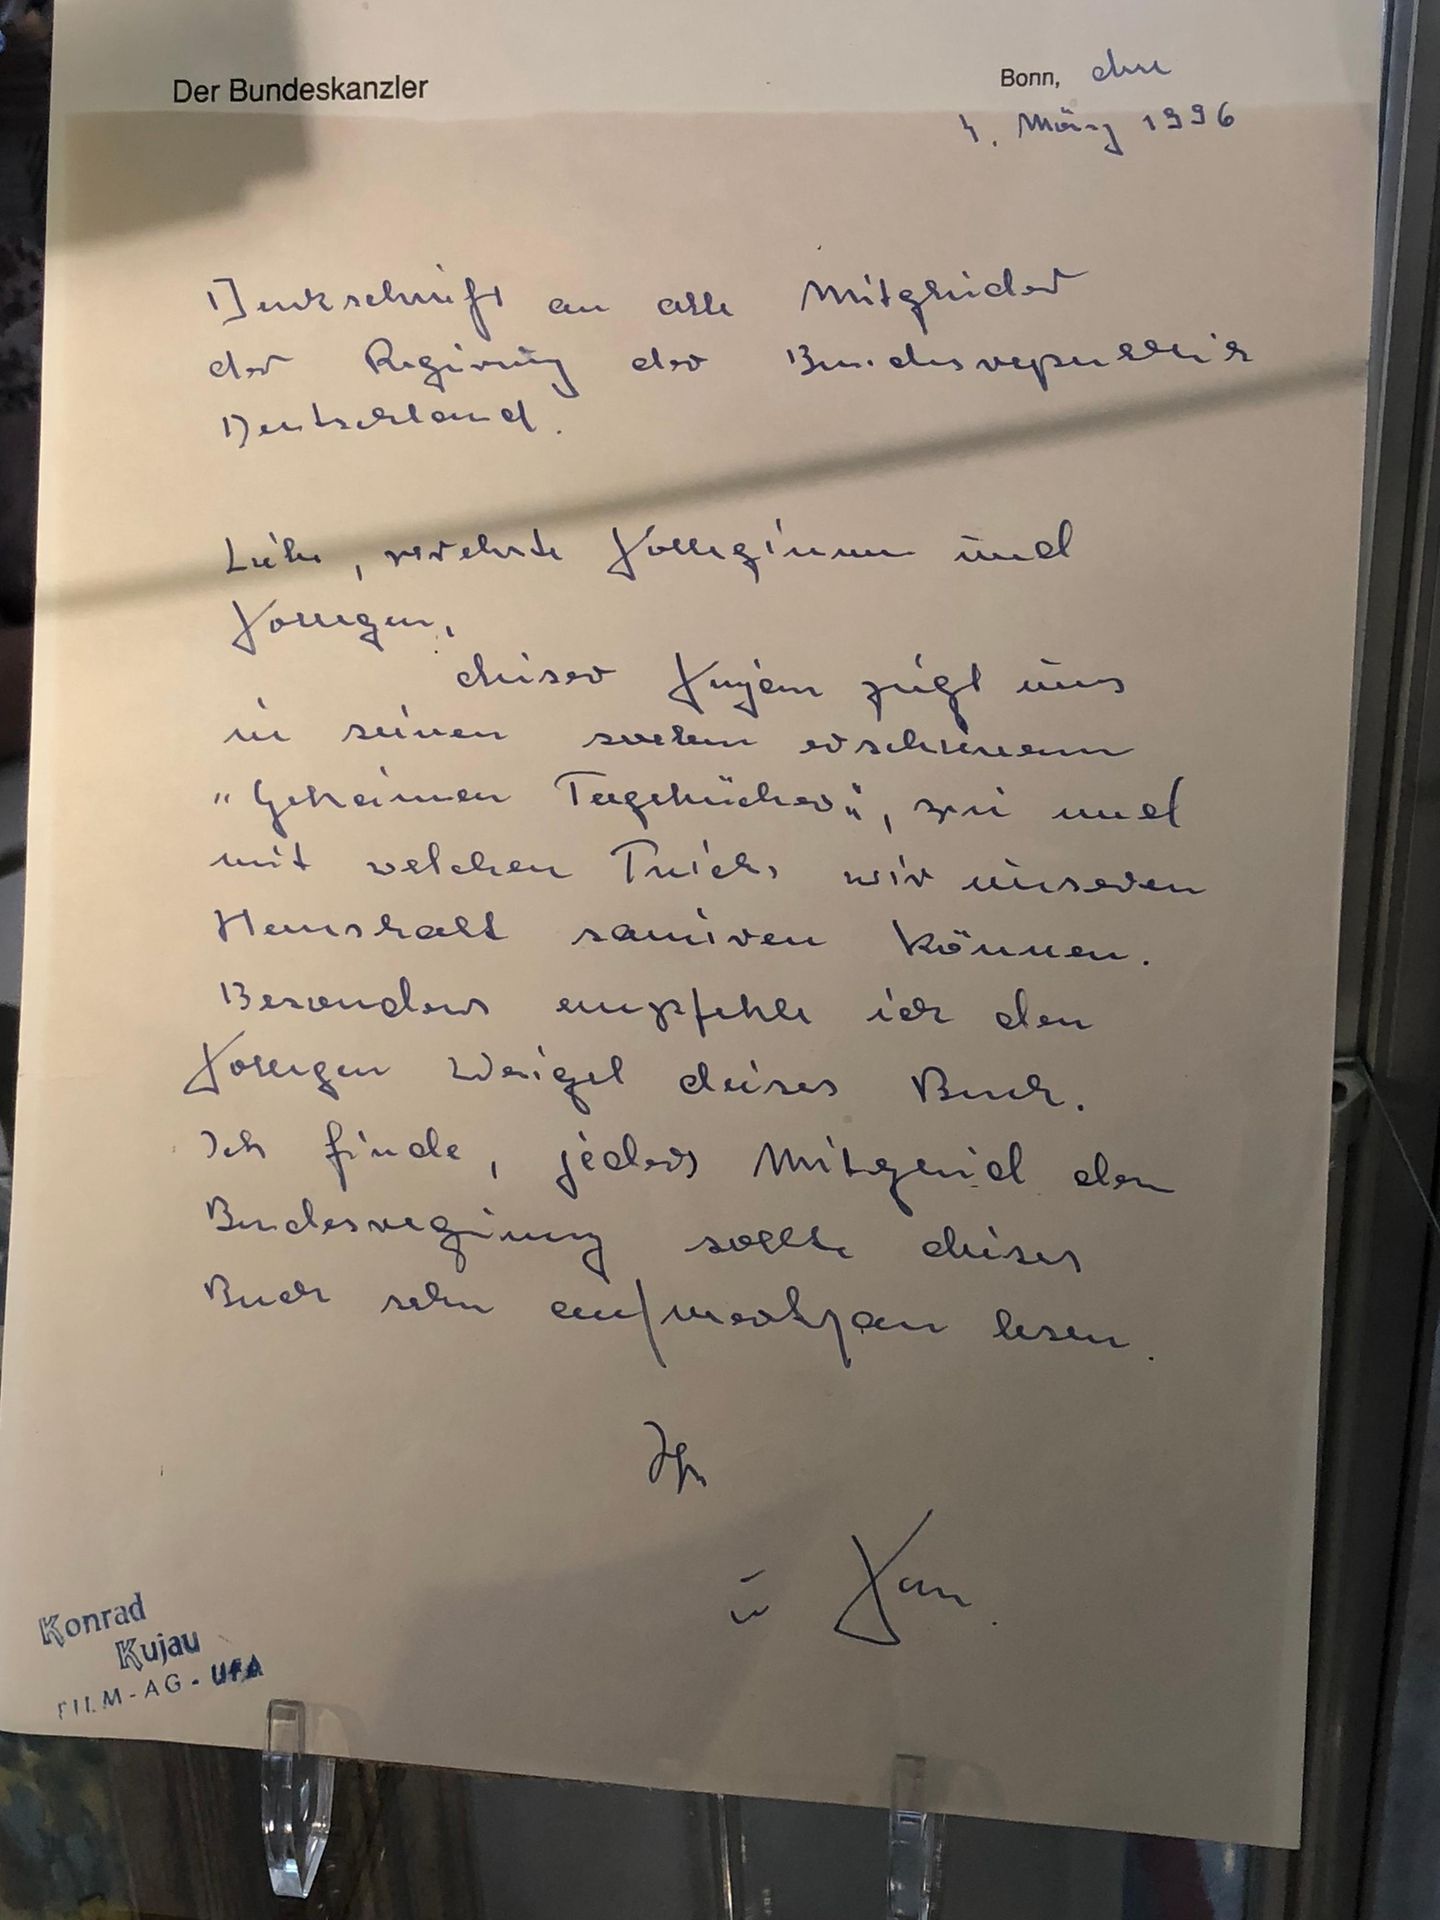 Der Bundeskanzler
Bonn, den
4. März 1996
Denkschrift an alle Mitglieder
der Regirung der Bundesrepublik
Deutschland.
Liebe, verehrte Kolleginnen und
Kollegen,
dieser Kujau zeigt uns
in seinen soeben erschienenen
"Geheimen Tagebücher", wie und
mit welchen Tricks wir unseren
Haushalt saniren können.
Besonders empfehle ich den
Kollegen Weigel dieses Buch.
Ich finde, jedes Mitgleid der
Bundesregirung sollte dieses
Buch sehr aufmerksam lesen.
Ihr
Konrad
Kujau
FILM-AG-UFA